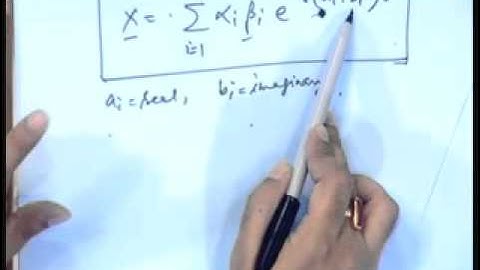 x = . Σ αᵢ βᵢ e
i=1
aᵢ = real, bᵢ = imaginary.